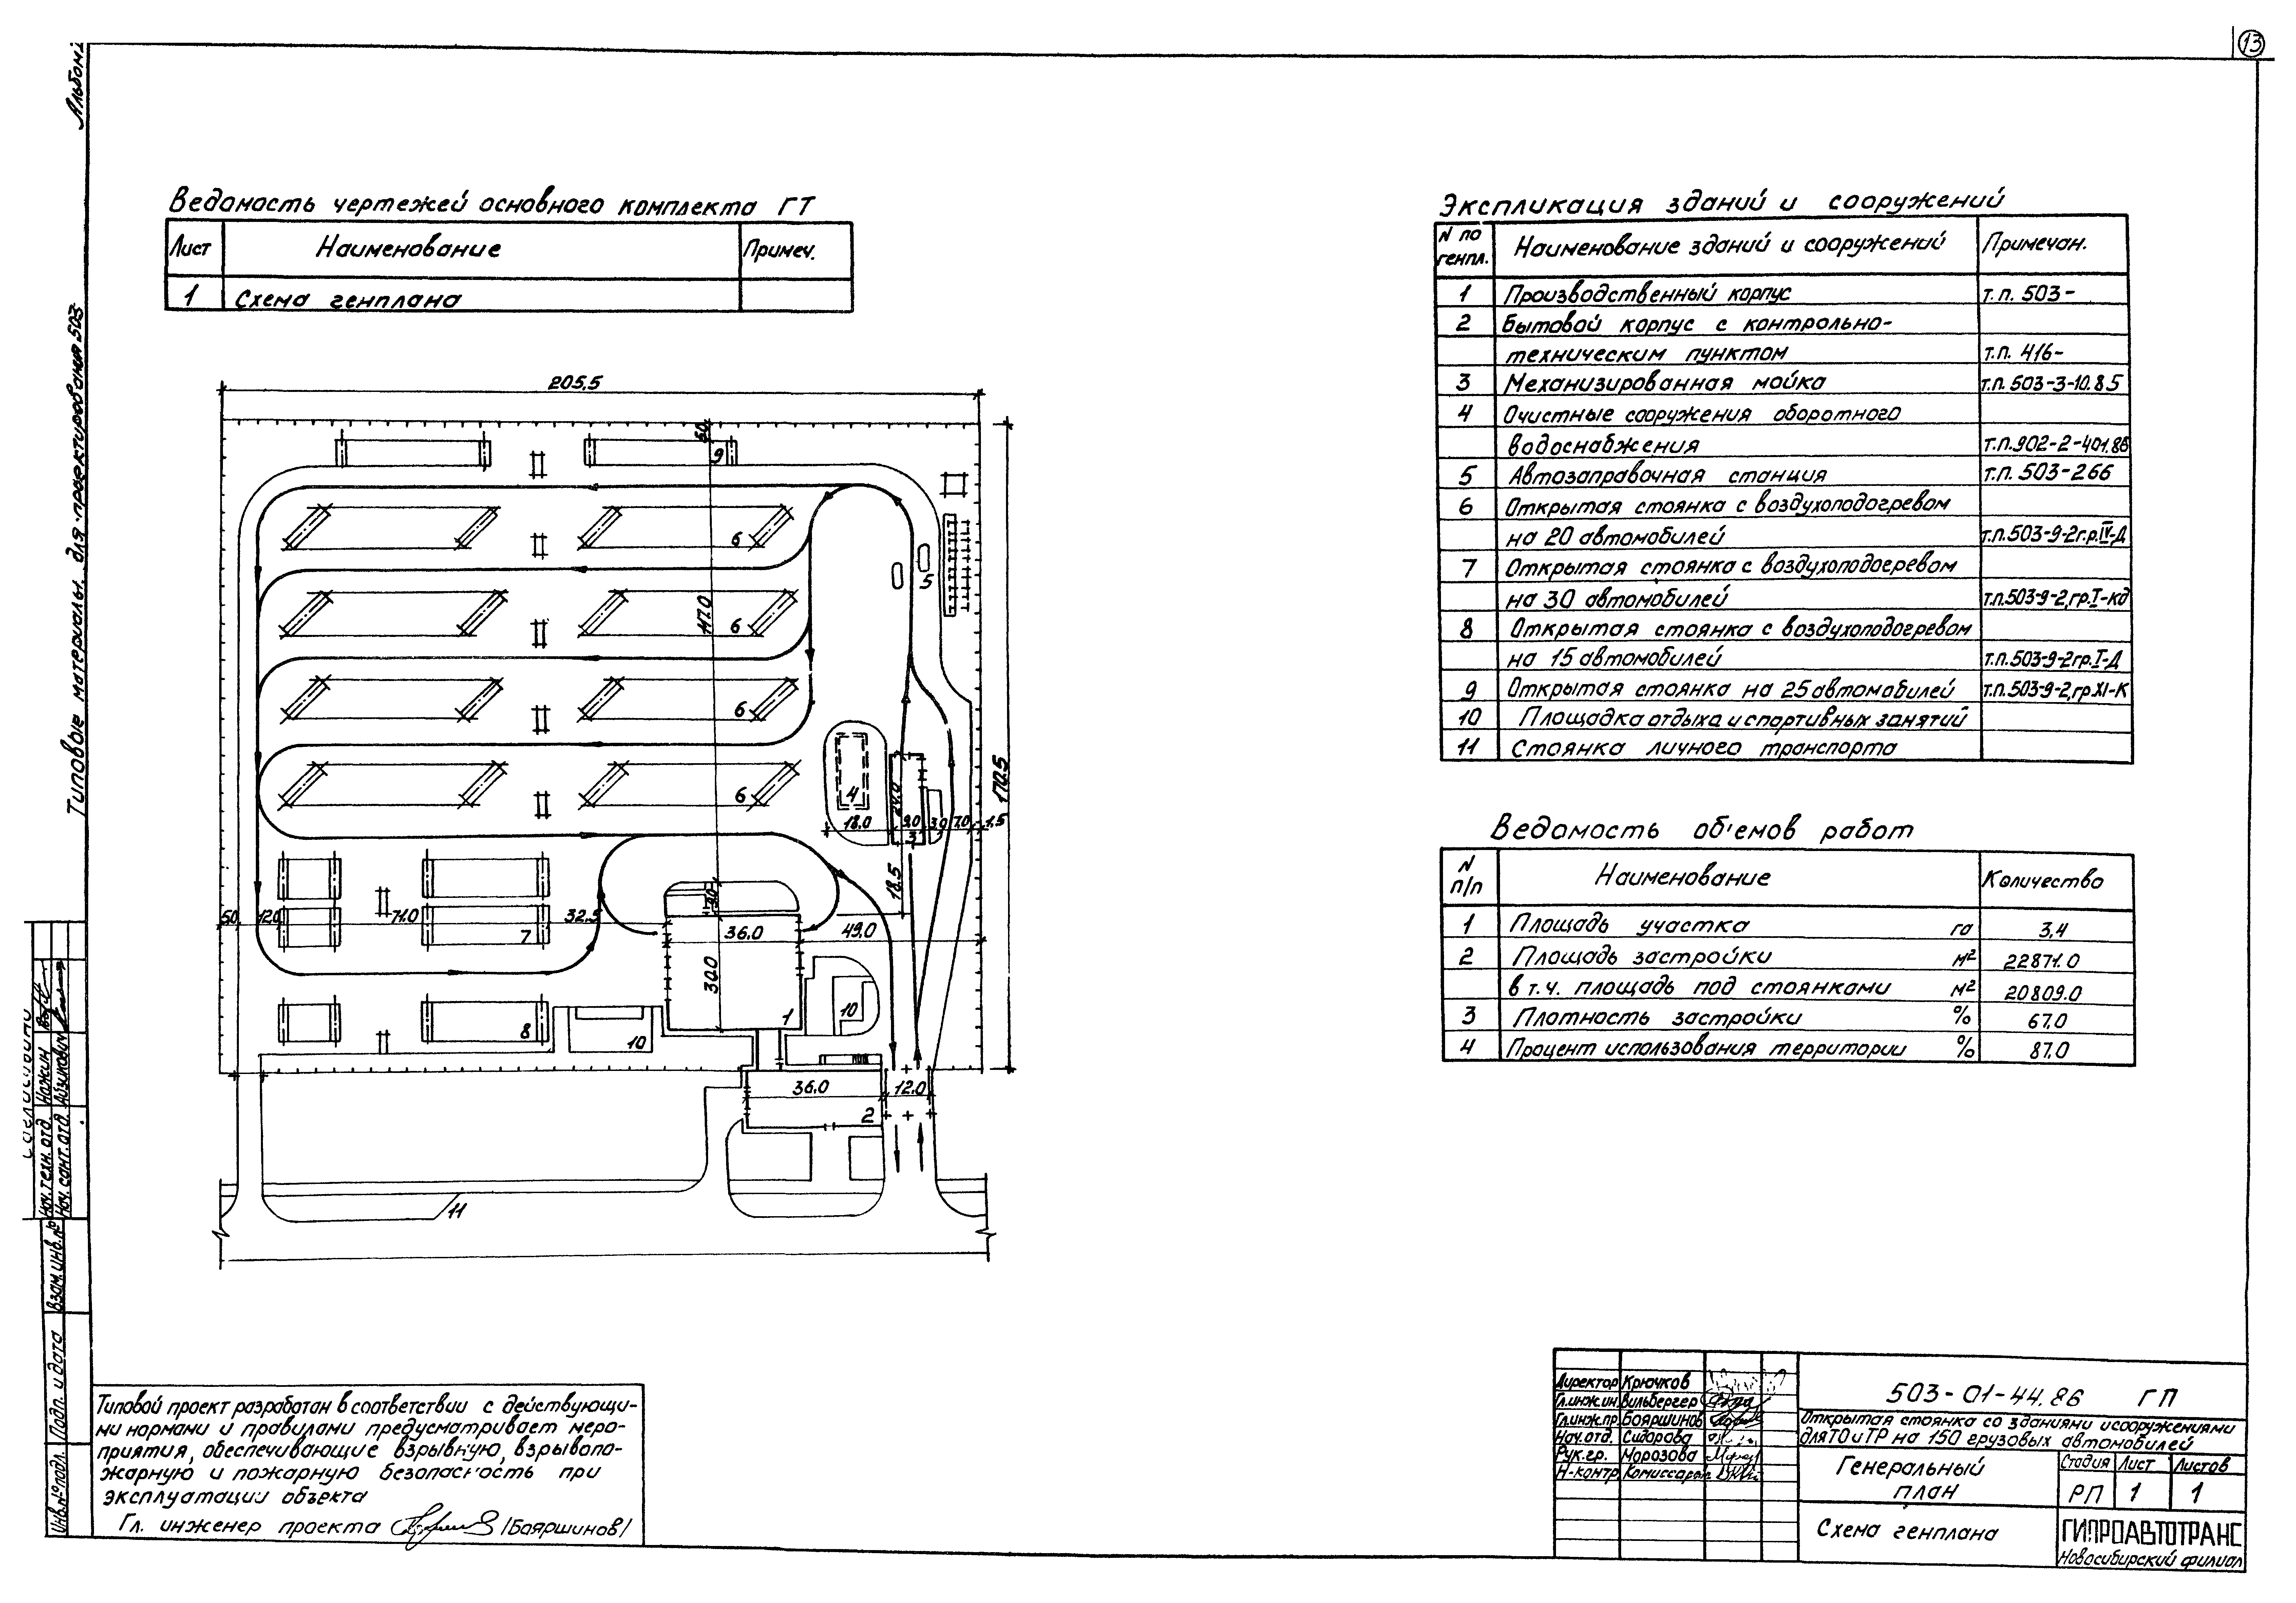 13
Альбом
Типовые материалы для проектирования 503
Ведомость чертежей основного комплекта ГТ
Лист Наименование Примеч.
1 Схема генплана
205,5
50
9
6
147.0
6
5
6
6
4
24.0
170.5
18.0 9.0 3.0 7.0 1.5
3
18.5
9.0
50 12.0 71.0 32.5
36.0 49.0
7
30.0
8
10
1
10
36.0 12.0
2
11
Экспликация зданий и сооружений
N по генпл. Наименование зданий и сооружений Примечан.
1 Производственный корпус т.п. 503-
2 Бытовой корпус с контрольно-
техническим пунктом т.п. 416-
3 Механизированная мойка т.п. 503-3-10.85
4 Очистные сооружения оборотного
водоснабжения т.п.902-2-401.86
5 Автозаправочная станция т.п. 503-266
6 Открытая стоянка с воздухоподогревом
на 20 автомобилей т.п.503-9-2г.р.IV-Д
7 Открытая стоянка с воздухоподогревом
на 30 автомобилей т.п.503-9-2,гр.I-КД
8 Открытая стоянка с воздухоподогревом
на 15 автомобилей т.п.503-9-2гр.I-Д
9 Открытая стоянка на 25 автомобилей т.п.503-9-2,гр.XI-К
10 Площадка отдыха и спортивных занятий
11 Стоянка личного транспорта
Ведомость об'емов работ
N п/п Наименование Количество
1 Площадь участка га 3,4
2 Площадь застройки м² 22871.0
в т.ч. площадь под стоянками м² 20809.0
3 Плотность застройки % 67.0
4 Процент использования территории % 87.0
Нач.техн.отд. Ножин
Нач.сант.отд.
Взам.инв.№
Подп. и дата
Инв.№подл.
Типовой проект разработан в соответствии с действующи-
ми нормами и правилами предусматривает меро-
приятия, обеспечивающие взрывную, взрывопо-
жарную и пожарную безопасность при
эксплуатации объекта
Гл. инженер проекта /Бояршинов/
Директор Крючков
Гл.инж.ин Вильбергер
Гл.инж.пр. Бояршинов
Нач.отд. Сидорова
Рук.гр. Морозова
Н-контр Комиссаров
503-01-44.86 ГП
Открытая стоянка со зданиями и сооружениями
для ТО и ТР на 150 грузовых автомобилей
Генеральный план
Стадия Лист Листов
РП 1 1
Схема генплана
ГИПРОАВТОТРАНС
Новосибирский филиал